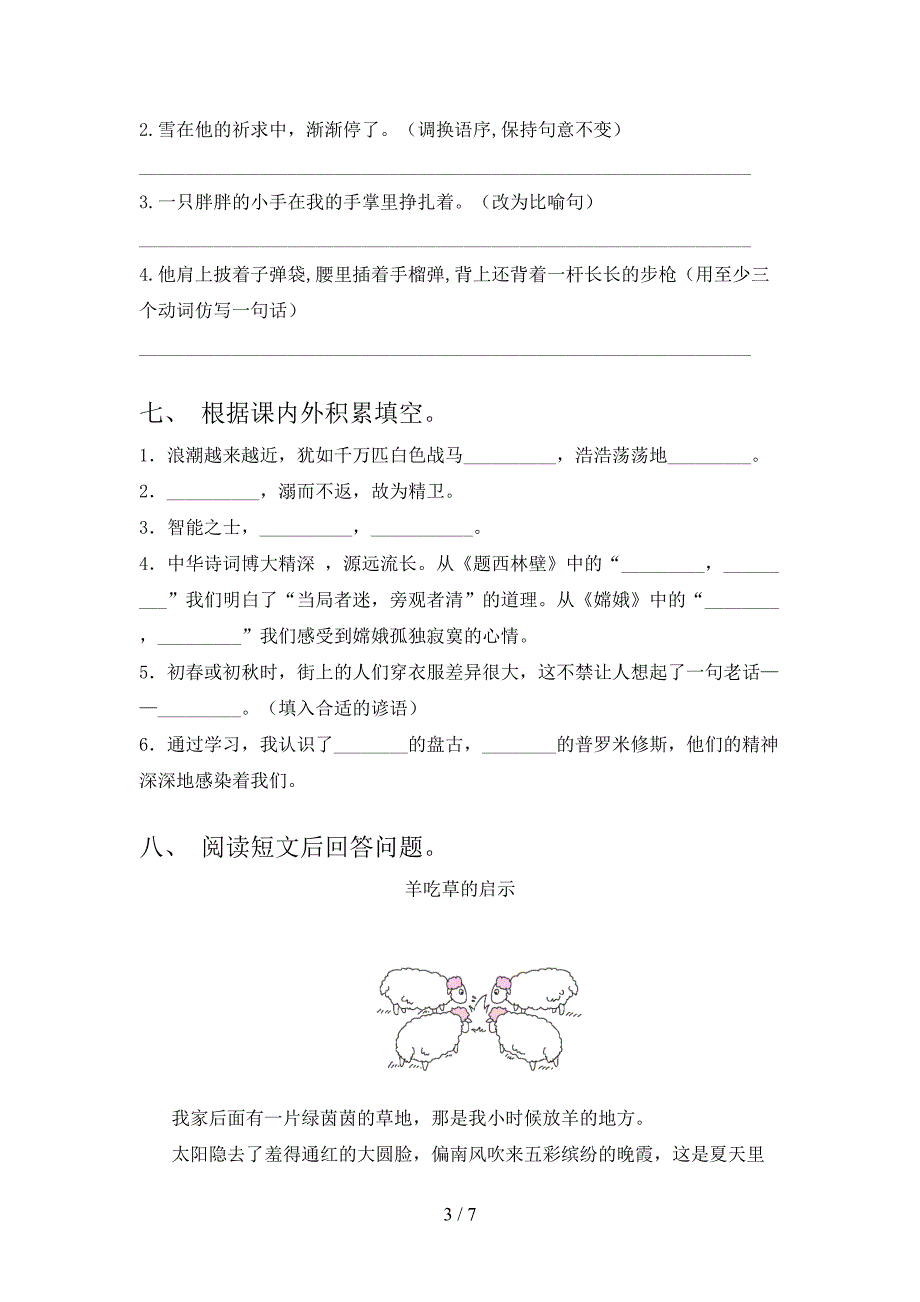 2.雪在他的祈求中，渐渐停了。（调换语序,保持句意不变）
__________________________________________________________________
3.一只胖胖的小手在我的手掌里挣扎着。（改为比喻句）
__________________________________________________________________
4.他肩上披着子弹袋,腰里插着手榴弹,背上还背着一杆长长的步枪（用至少三
个动词仿写一句话）
__________________________________________________________________
七、 根据课内外积累填空。
1．浪潮越来越近，犹如千万匹白色战马__________，浩浩荡荡地_________。
2．__________，溺而不返，故为精卫。
3．智能之士，__________，___________。
4．中华诗词博大精深 ，源远流长。从《题西林壁》中的“_________，______
___”我们明白了“当局者迷，旁观者清”的道理。从《嫦娥》中的“________
，_________”我们感受到嫦娥孤独寂寞的心情。
5．初春或初秋时，街上的人们穿衣服差异很大，这不禁让人想起了一句老话—
—_________。（填入合适的谚语）
6．通过学习，我认识了________的盘古，________的普罗米修斯，他们的精神
深深地感染着我们。
八、 阅读短文后回答问题。
羊吃草的启示
我家后面有一片绿茵茵的草地，那是我小时候放羊的地方。
太阳隐去了羞得通红的大圆脸，偏南风吹来五彩缤纷的晚霞，这是夏天里
3 / 7